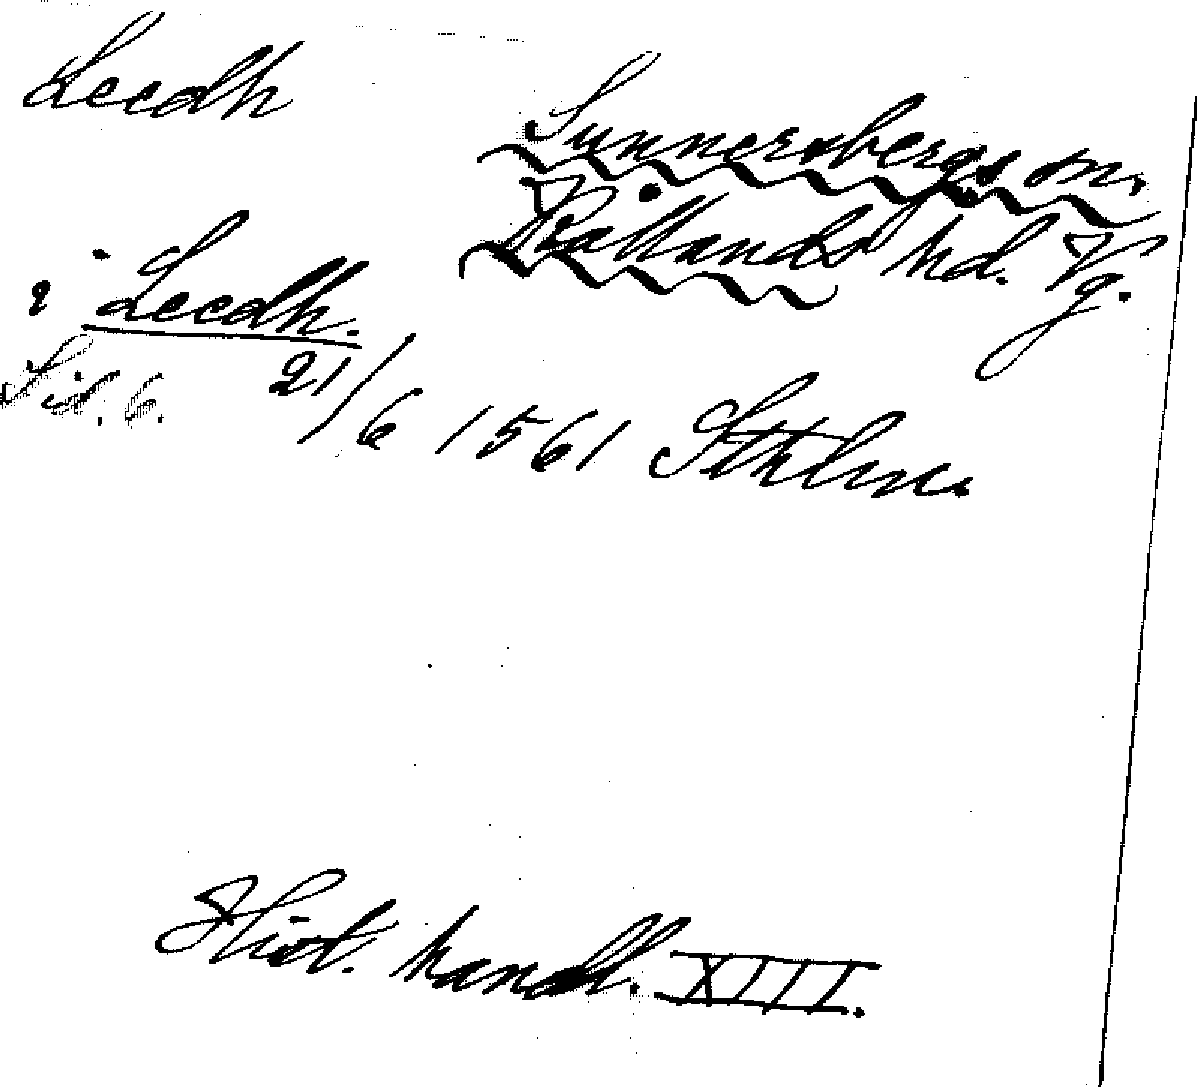 Leedh
Sunnersbergs sn.
Kållands hd. Vg.
i Leedh.
Sid. 6.
21/6 1561 Sthlm.
Hist. handl. XIII.